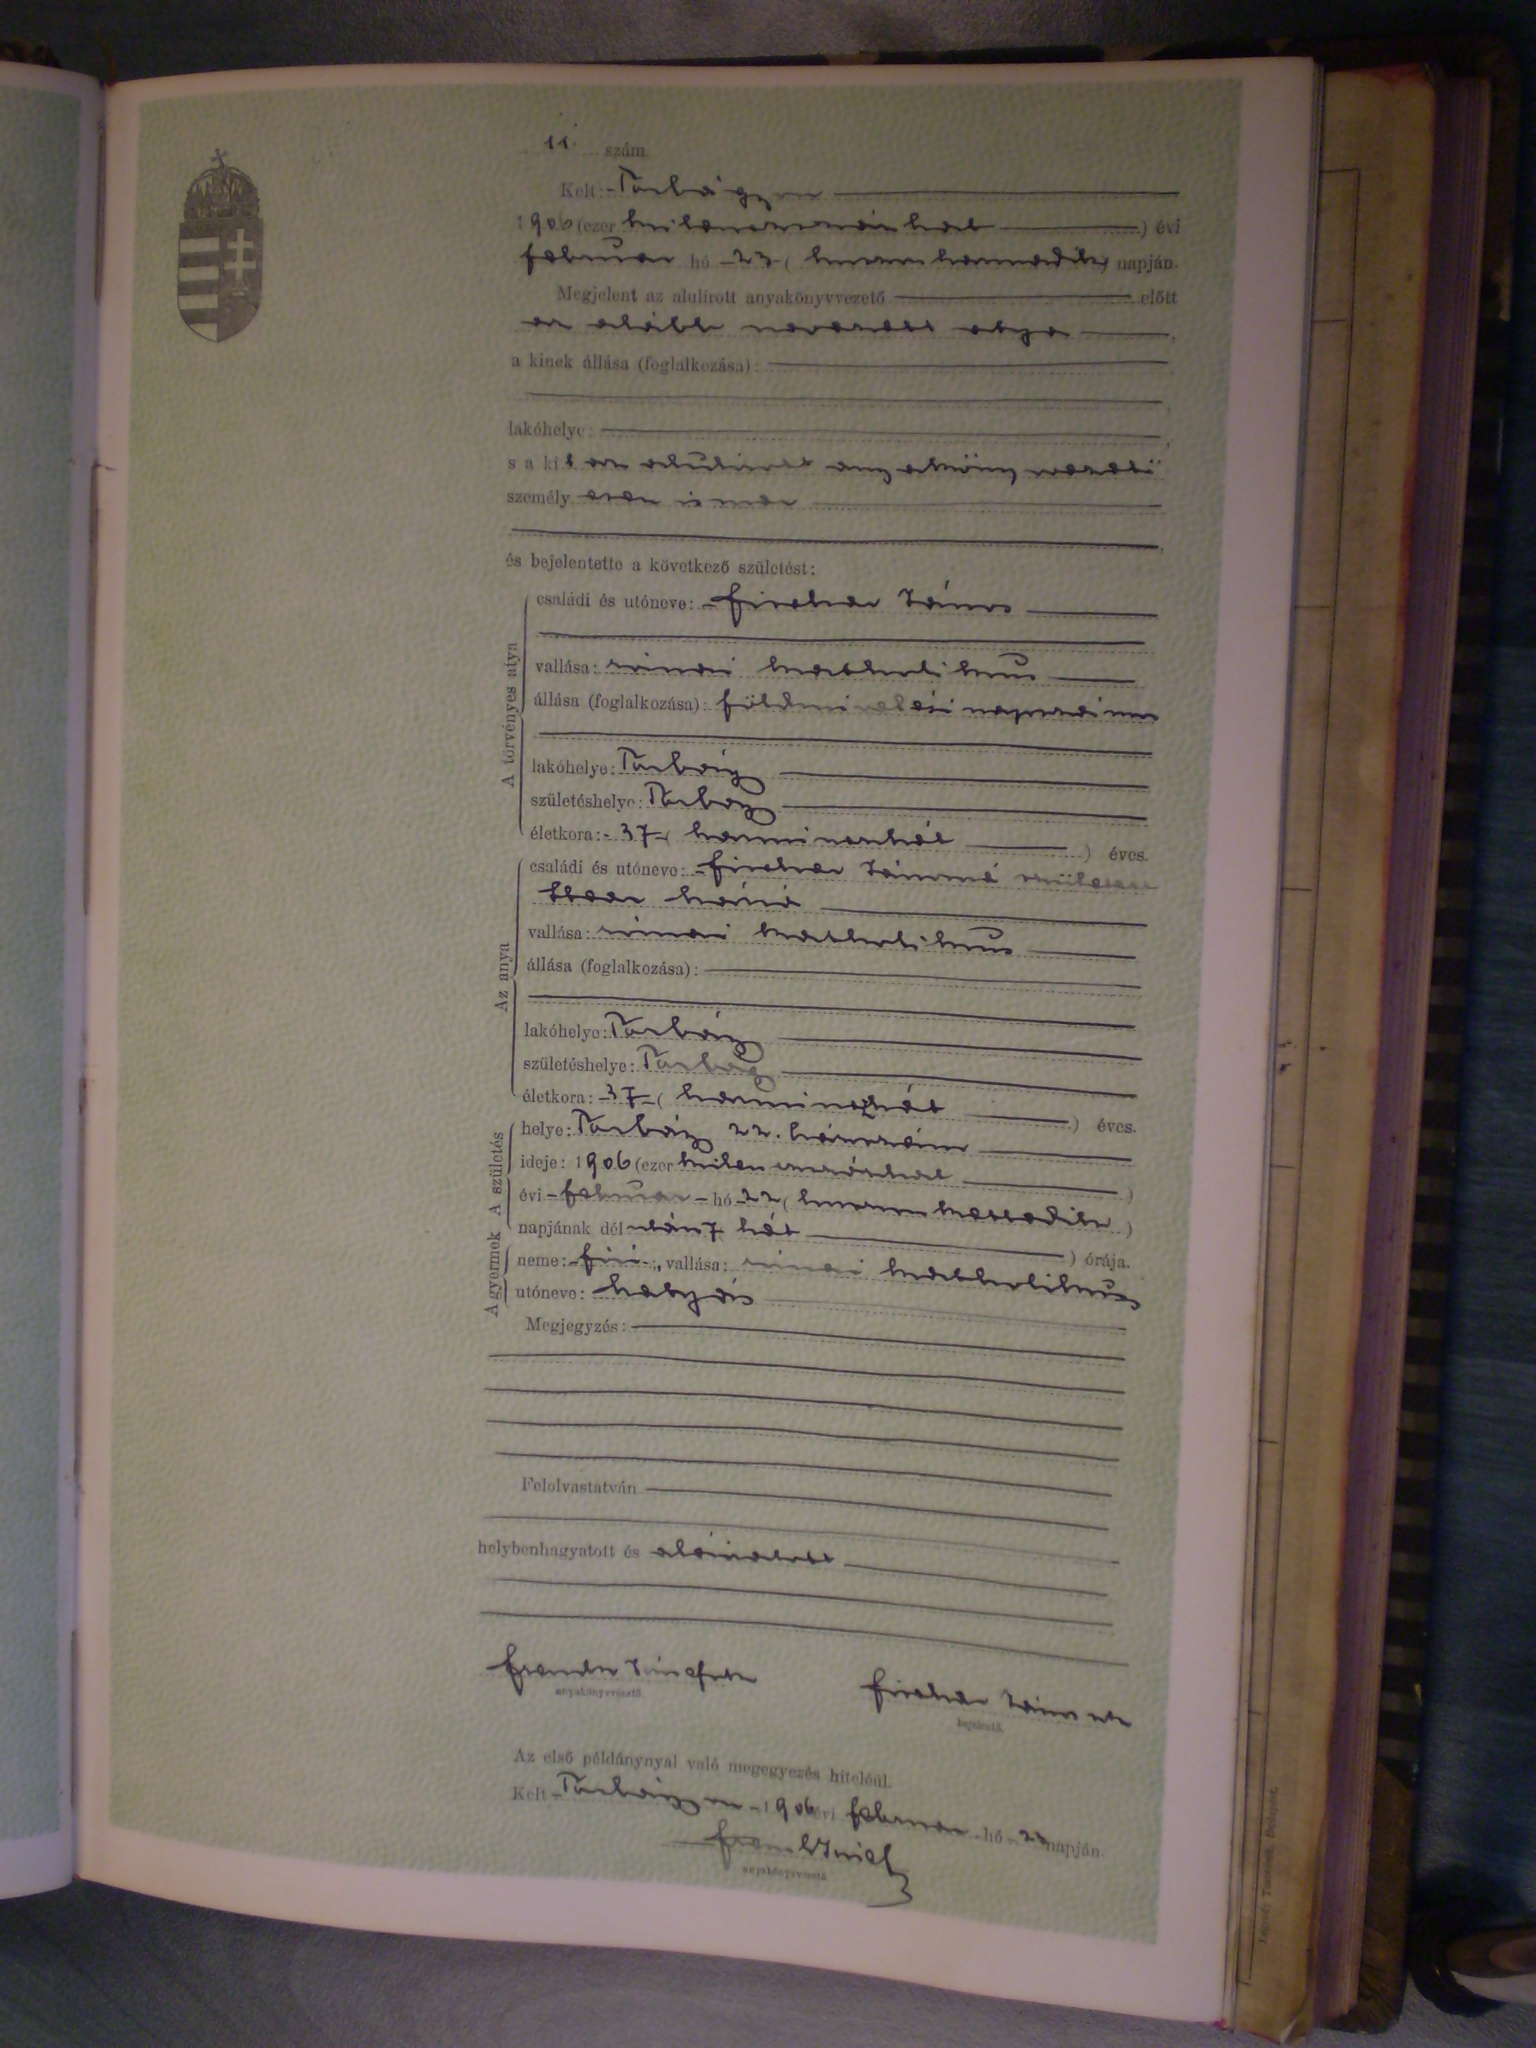 11. szám.
Kelt: Torbágyon
1906 (ezer kilenczszázhat) évi
február hó 23 (huszonharmadik) napján.
Megjelent az alulirott anyakönyvvezető előtt
az alább nevezett atya,
a kinek állása (foglalkozása):
lakóhelye:
s a kit az alulirott anyakönyvvezető
személyesen ismer
és bejelentette a következő születést:
A törvényes atya
családi és utóneve: Fischer János
vallása: római katholikus
állása (foglalkozása): földmivelési napszámos
lakóhelye: Torbágy
születéshelye: Torbágy
életkora: 37 (harminczhét) éves.
Az anya
családi és utóneve: Fischer Jánosné született
vallása: római katholikus
állása (foglalkozása):
lakóhelye: Torbágy
születéshelye: Torbágy
életkora: 37 (harminczhét) éves.
A születés
helye: Torbágy 22. házszám
ideje: 1906 (ezer kilenczszázhat)
évi február hó 22 (huszonkettedik)
napjának délután 7 hét) órája.
A gyermek
neme: fiú, vallása: római katholikus
utóneve: Mátyás
Megjegyzés:
Felolvastatván
helybenhagyatott és aláiratott
anyakönyvvezető.
Fischer János
bejelentő.
Az első példánynyal való megegyezés hiteléül.
Kelt Torbágyon 1906 évi február hó 23 napján.
anyakönyvvezető